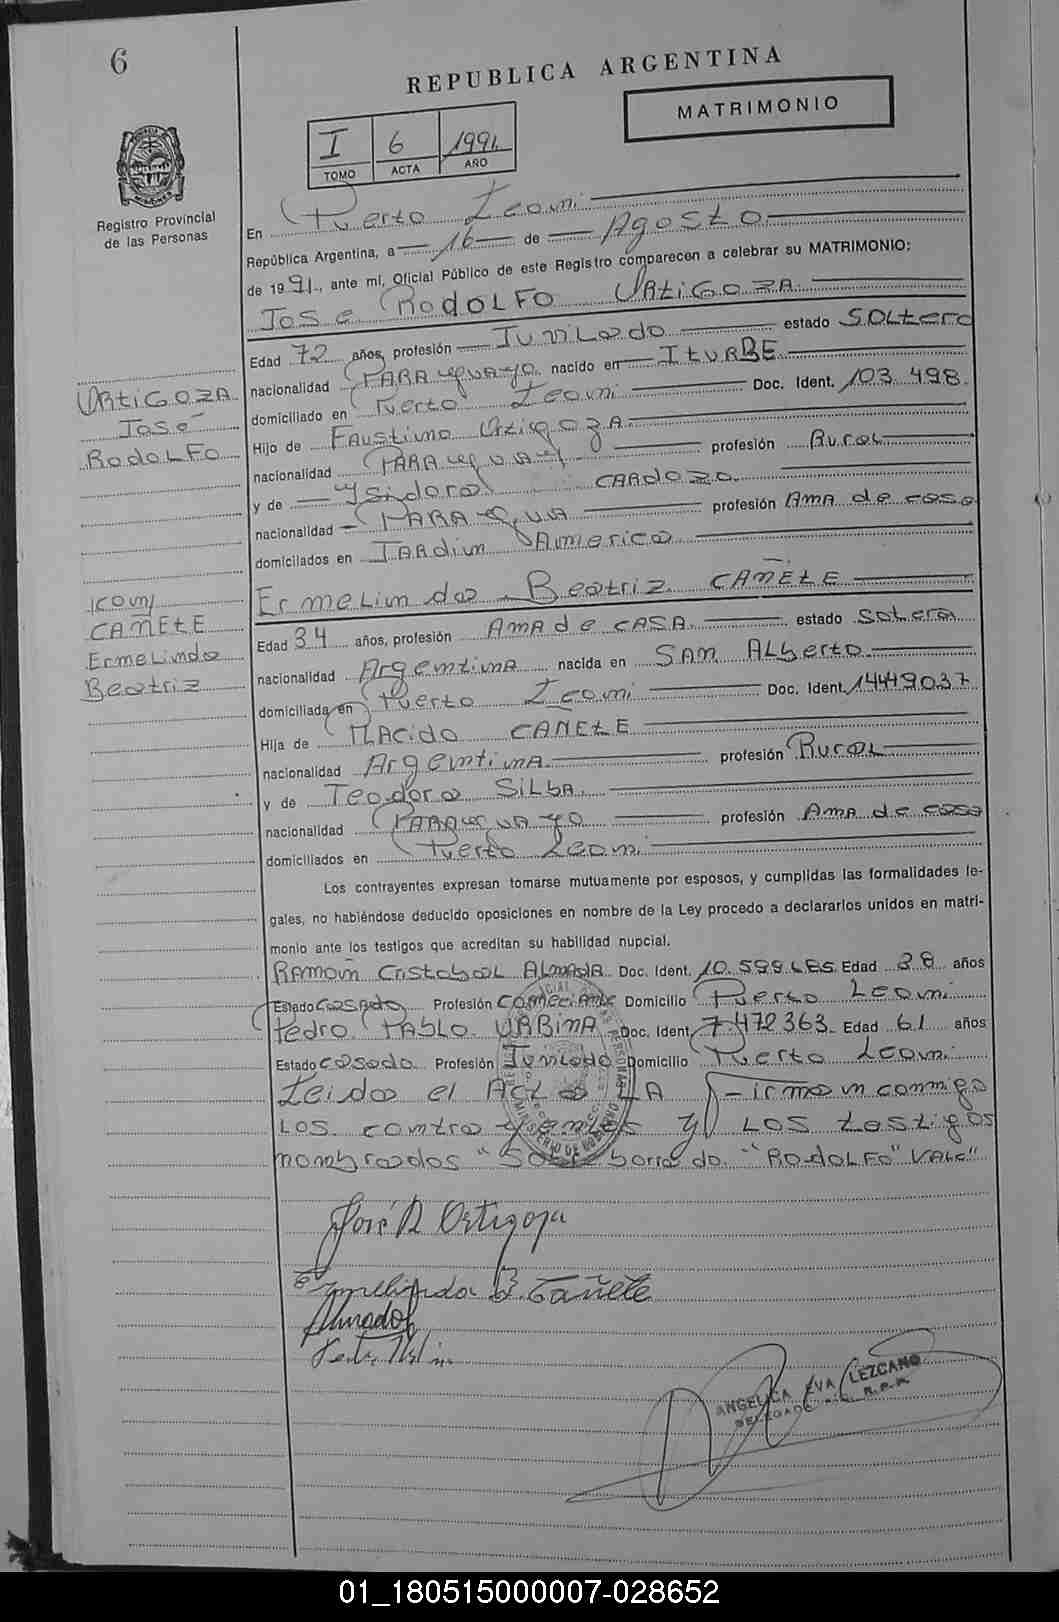 6
REPUBLICA ARGENTINA
MATRIMONIO
I 6 1991
TOMO ACTA AÑO
Registro Provincial
de las Personas
En Puerto Leoni
República Argentina, a 16 de Agosto
de 1991, ante mí, Oficial Público de este Registro comparecen a celebrar su MATRIMONIO:
Jose RodoLFo URtiGOZA
Edad 72 años, profesión Juvilado estado SOLtero
nacionalidad PARAguayo nacido en ITURBE
domiciliado en Puerto Leoni Doc. Ident. 103 498
Hijo de Faustino Urtigoza
nacionalidad PARAguay profesión RuraL
y de Ysidora CARDOZO
nacionalidad PARAgua profesión Ama de casa
domiciliados en JARdin America
URtiGOZA
José
RodoLFo
con
CAÑEtE
ErmeLinda
Beatriz
ErmeLinda Beatriz CAÑEtE
Edad 34 años, profesión AMA de CASA estado Soltera
nacionalidad Argentina nacida en SAN ALberto
domiciliada en Puerto Leoni Doc. Ident. 14449037
Hija de PLAcido CAÑEtE
nacionalidad Argentina profesión RuraL
y de Teodora SiLba
nacionalidad PARAguayo profesión Ama de casa
domiciliados en Puerto Leoni
Los contrayentes expresan tomarse mutuamente por esposos, y cumplidas las formalidades le-
gales, no habiéndose deducido oposiciones en nombre de la Ley procedo a declararlos unidos en matri-
monio ante los testigos que acreditan su habilidad nupcial.
RAMON CristobaL ALMADA Doc. Ident. 10.599.185 Edad 38 años
Estado Casado Profesión Comeciante Domicilio Puerto Leoni
Pedro PABLO URBiNA Doc. Ident. 7472363 Edad 61 años
Estado Casado Profesión Juvilado Domicilio Puerto Leoni
Leida el Acta LA Firman conmigo
LOS contrayentes y LOS testigos
nombrados "Sobre borrado "RodoLFo" VALE"
José R Ortigoza
Ermelinda B. Cañete
Almada
MINISTERIO DE GOBIERNO
ANGELICA EVA LEZCANO
DELEGADO R.P.P.
01_180515000007-028652